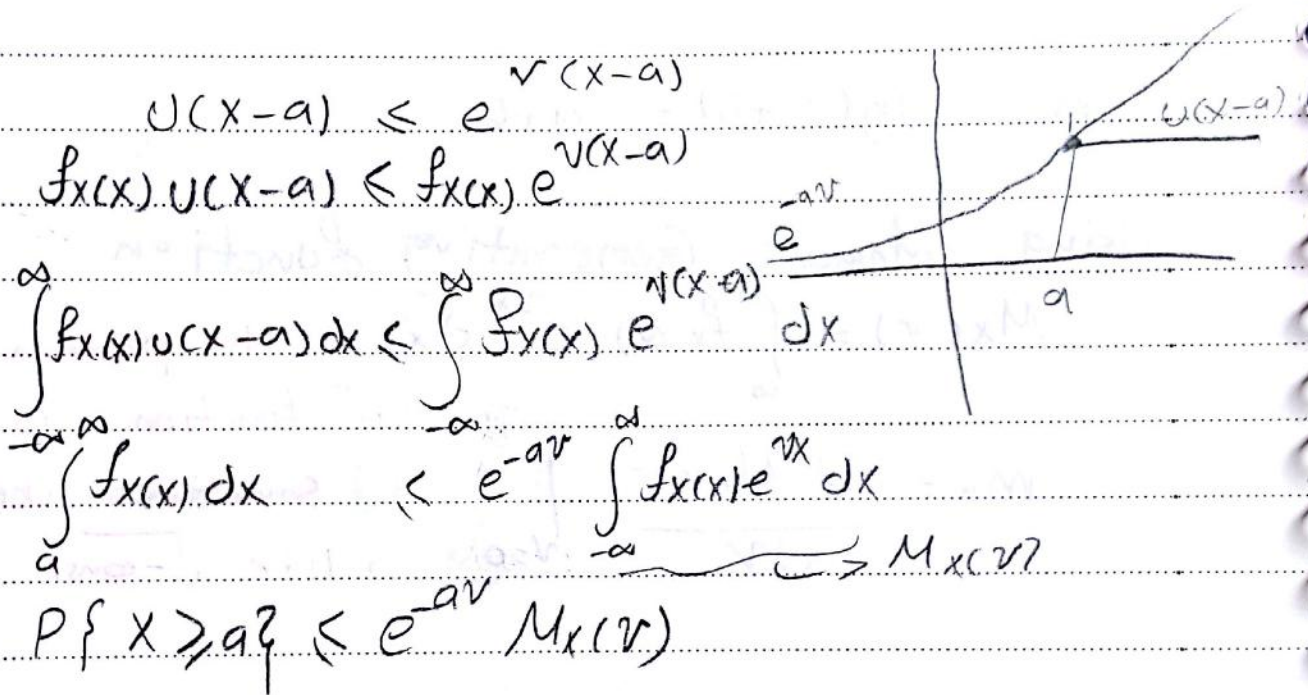 U(x-a) ≤ e^{v(x-a)}
f_X(x) U(x-a) ≤ f_X(x) e^{v(x-a)}
∫_{-∞}^{∞} f_X(x) U(x-a) dx ≤ ∫_{-∞}^{∞} f_X(x) e^{v(x-a)} dx
∫_{a}^{∞} f_X(x) dx ≤ e^{-av} ∫_{-∞}^{∞} f_X(x) e^{vx} dx
→ M_X(v)
P{X ≥ a} ≤ e^{-av} M_X(v)
U(x-a)
1
e^{-av}
a